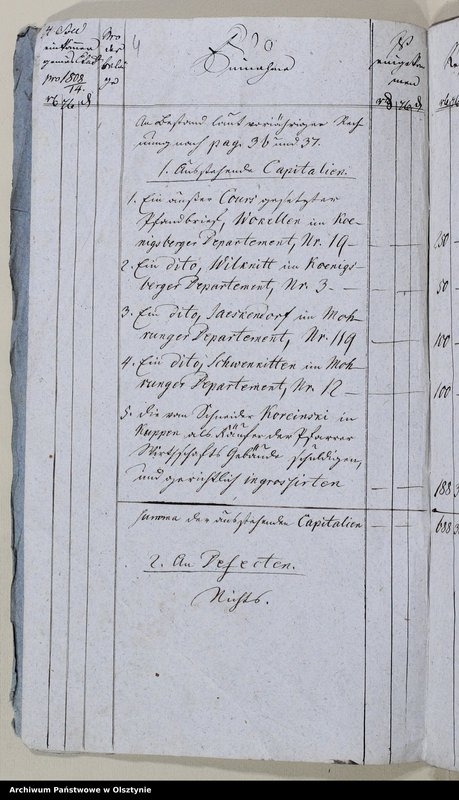 4
Einnahme
pro 1808/14.
An Bestand laut vorjähriger Rech-
nung nach pag. 36 und 37.
1. Ausstehende Capitalien.
1. Ein außer Cours gesetzter
Pfandbrief, Wokellen im Koe-
nigsberger Departement, Nr. 19
2. Ein dito, Wilknitt im Koenigs-
berger Departement, Nr. 3
3. Ein dito, Jaeskendorf im Moh-
runger Departement, Nr. 119
4. Ein dito, Schwenkitten im Moh-
runger Departement, Nr. 12
5. Die vom Schneider Koreinski in
Kuppen als Käufer der Pfarrer
Wirthschafts Gebäude schuldigen,
und gerichtlich ingrossirten
Summa der ausstehenden Capitalien
2. An Defecten.
Nichts.
50
100
100
188
688
Archiwum Państwowe w Olsztynie